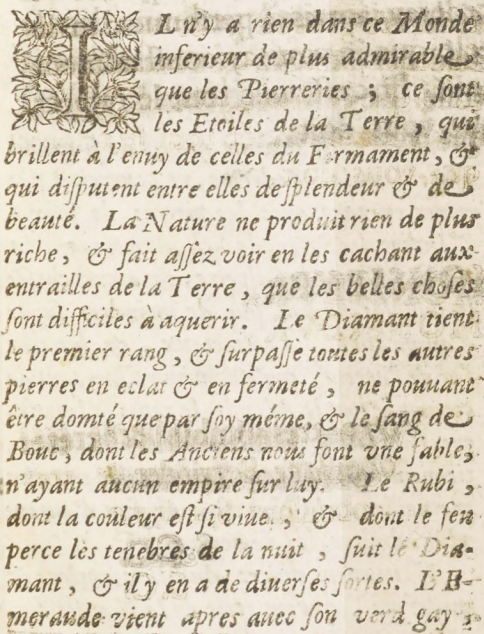 IL n'y a rien dans ce Monde
inferieur de plus admirable
que les Pierreries ; ce sont
les Etoiles de la Terre , qui
brillent à l'enuy de celles du Firmament , &
qui disputent entre elles de splendeur & de
beauté. La Nature ne produit rien de plus
riche , & fait assez voir en les cachant aux
entrailles de la Terre , que les belles choses
sont difficiles à aquerir. Le Diamant tient
le premier rang , & surpasse toutes les autres
pierres en eclat & en fermeté , ne pouvant
être domté que par soy méme, & le sang de
Bouc , dont les Anciens nous font vne fable,
n'ayant aucun empire sur luy. Le Rubi ,
dont la couleur est si viue , & dont le feu
perce les tenebres de la nuit , suit le Dia-
mant , & il y en a de diuerses sortes. L'E-
meraude vient apres auec son verd gay ;